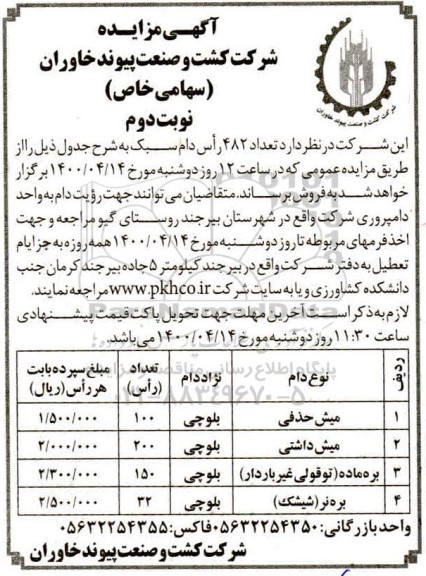 آگهی مزایده
شرکت کشت و صنعت پیوند خاوران
(سهامی خاص)
نوبت دوم
شرکت کشت و صنعت پیوند خاوران
این شرکت در نظر دارد تعداد ۴۸۲ رأس دام سبک به شرح جدول ذیل را از
طریق مزایده عمومی که در ساعت ۱۲ روز دوشنبه مورخ ۱۴۰۰/۰۴/۱۴ برگزار
خواهد شد به فروش برساند. متقاضیان می‌توانند جهت رؤیت دام به واحد
دامپروری شرکت واقع در شهرستان بیرجند روستای گیو مراجعه و جهت
اخذ فرمهای مربوطه تا روز دوشنبه مورخ ۱۴۰۰/۰۴/۱۴ همه روزه به جز ایام
تعطیل به دفتر شرکت واقع در بیرجند کیلومتر ۵ جاده بیرجند کرمان جنب
دانشکده کشاورزی و یا به سایت شرکت www.pkhco.ir مراجعه نمایند.
لازم به ذکر است آخرین مهلت جهت تحویل پاکت قیمت پیشنهادی
ساعت ۱۱:۳۰ روز دوشنبه مورخ ۱۴۰۰/۰۴/۱۴ می‌باشد.
ردیف نوع دام نژاد دام تعداد (رأس) مبلغ سپرده بابت هر رأس (ریال)
۱ میش حذفی بلوچی ۱۰۰ ۱/۵۰۰/۰۰۰
۲ میش داشتی بلوچی ۲۰۰ ۲/۰۰۰/۰۰۰
۳ بره ماده (توقولی غیر باردار) بلوچی ۱۵۰ ۲/۳۰۰/۰۰۰
۴ بره نر (شیشک) بلوچی ۳۲ ۲/۵۰۰/۰۰۰
واحد بازرگانی: ۰۵۶۳۲۲۵۴۳۵۰ فاکس: ۰۵۶۳۲۲۵۴۳۵۵
شرکت کشت و صنعت پیوند خاوران
پایگاه اطلاع رسانی مناقصه
۰۲۱-۸۸۳۴۹۶۷۰-۵